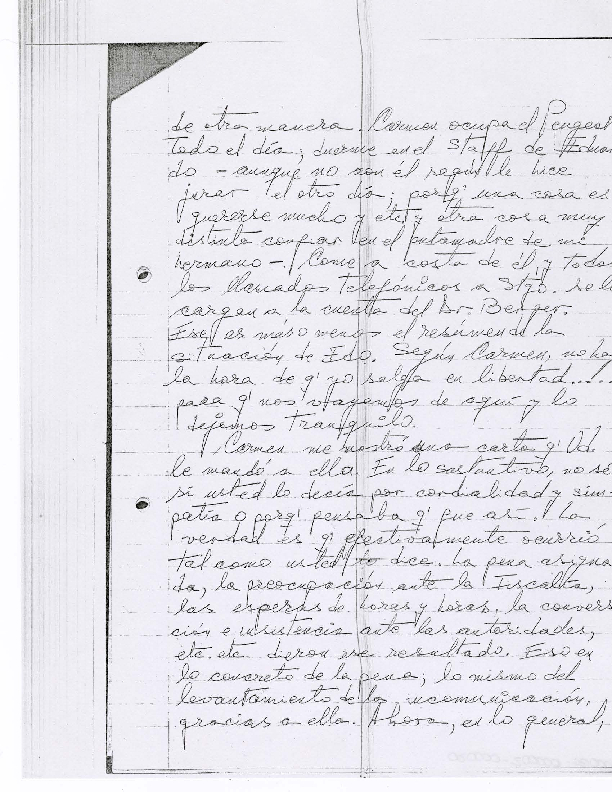 de otra manera. Carmen ocupa el Peugeot
todo el día; duerme en el Staff de Eduar
do - aunque no con el según le hice
jurar el otro día; porq' una cosa es
quererse mucho y etc, y otra cosa muy
distinta confiar en el putamadre de mi
hermano -. Come a costa de él, y todos
los llamados telefónicos a Stgo. se lo
cargan a la cuenta del Dr. Berger.
Ese es más o menos el resúmen de la
situación de Edo. Según Carmen, no hay
la hora de q' yo salga en libertad.....
para q' nos vayamos de aquí y lo
dejemos tranquilo.
Carmen me mostró una carta q' Ud.
le mandó a ella. En lo sustantivo, no sé
si usted lo decía por cordialidad y sim-
patía o porq' pensaba q' fue así. La
verdad es q' efectivamente ocurrió
tal como usted lo dice. La pena asigna
da, la preocupación ante la Fiscalía,
las esperas de horas y horas, la convers
ción e insistencia ante las autoridades,
etc. etc. dieron ese resultado. Eso en
lo concreto de la pena; lo mismo del
levantamiento de la incomunicación,
gracias a ella. Ahora, en lo general,